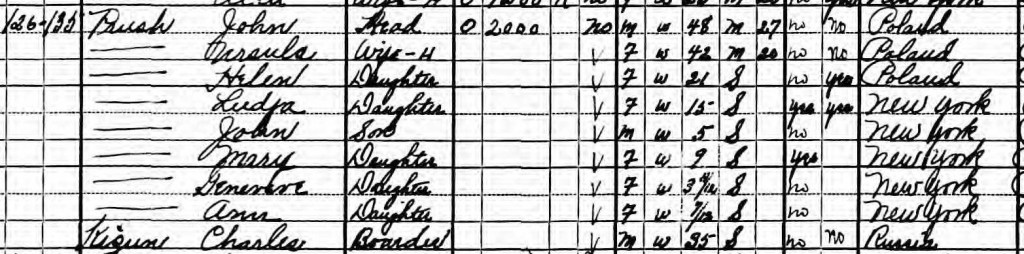 126-135 Rush John Head O 2000 no M W 48 M 27 no no Poland
Ursula Wife-H V F W 42 M 20 no no Poland
Helen Daughter V F W 21 S no yes Poland
Daughter V F W 15 S yes yes New York
John Son V M W 5 S no New York
Mary Daughter V F W 9 S yes New York
Genevieve Daughter V F W 3 4/12 S no New York
Ann Daughter V F W 7/12 S no New York
Charles Boarder V M W 35 S no no Russia